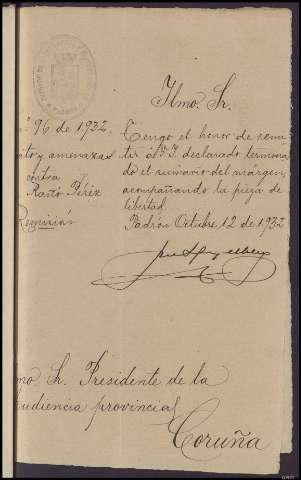 Ilmo. Sr.
96 de 1932
y amenazas
contra
Pérez
Tengo el honor de remi-
tir á V.I. declarado termina-
do el sumario del márgen,
acompañando la pieza de
libertad.
Padrón Octubre 12 de 1932
mo Sr. Presidente de la
udiencia provincial
Coruña